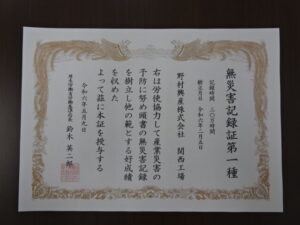 無災害記録証第一種
記録時間 三〇万時間
樹立月日 令和六年二月五日
野村興産株式会社 関西工場
右は労使協力して産業災害の
予防に努め頭書の無災害記録
を樹立し他の範とする好成績
を収めた
よって茲に本証を授与する
令和六年五月九日
厚生労働省労働基準局長 鈴木英二郎